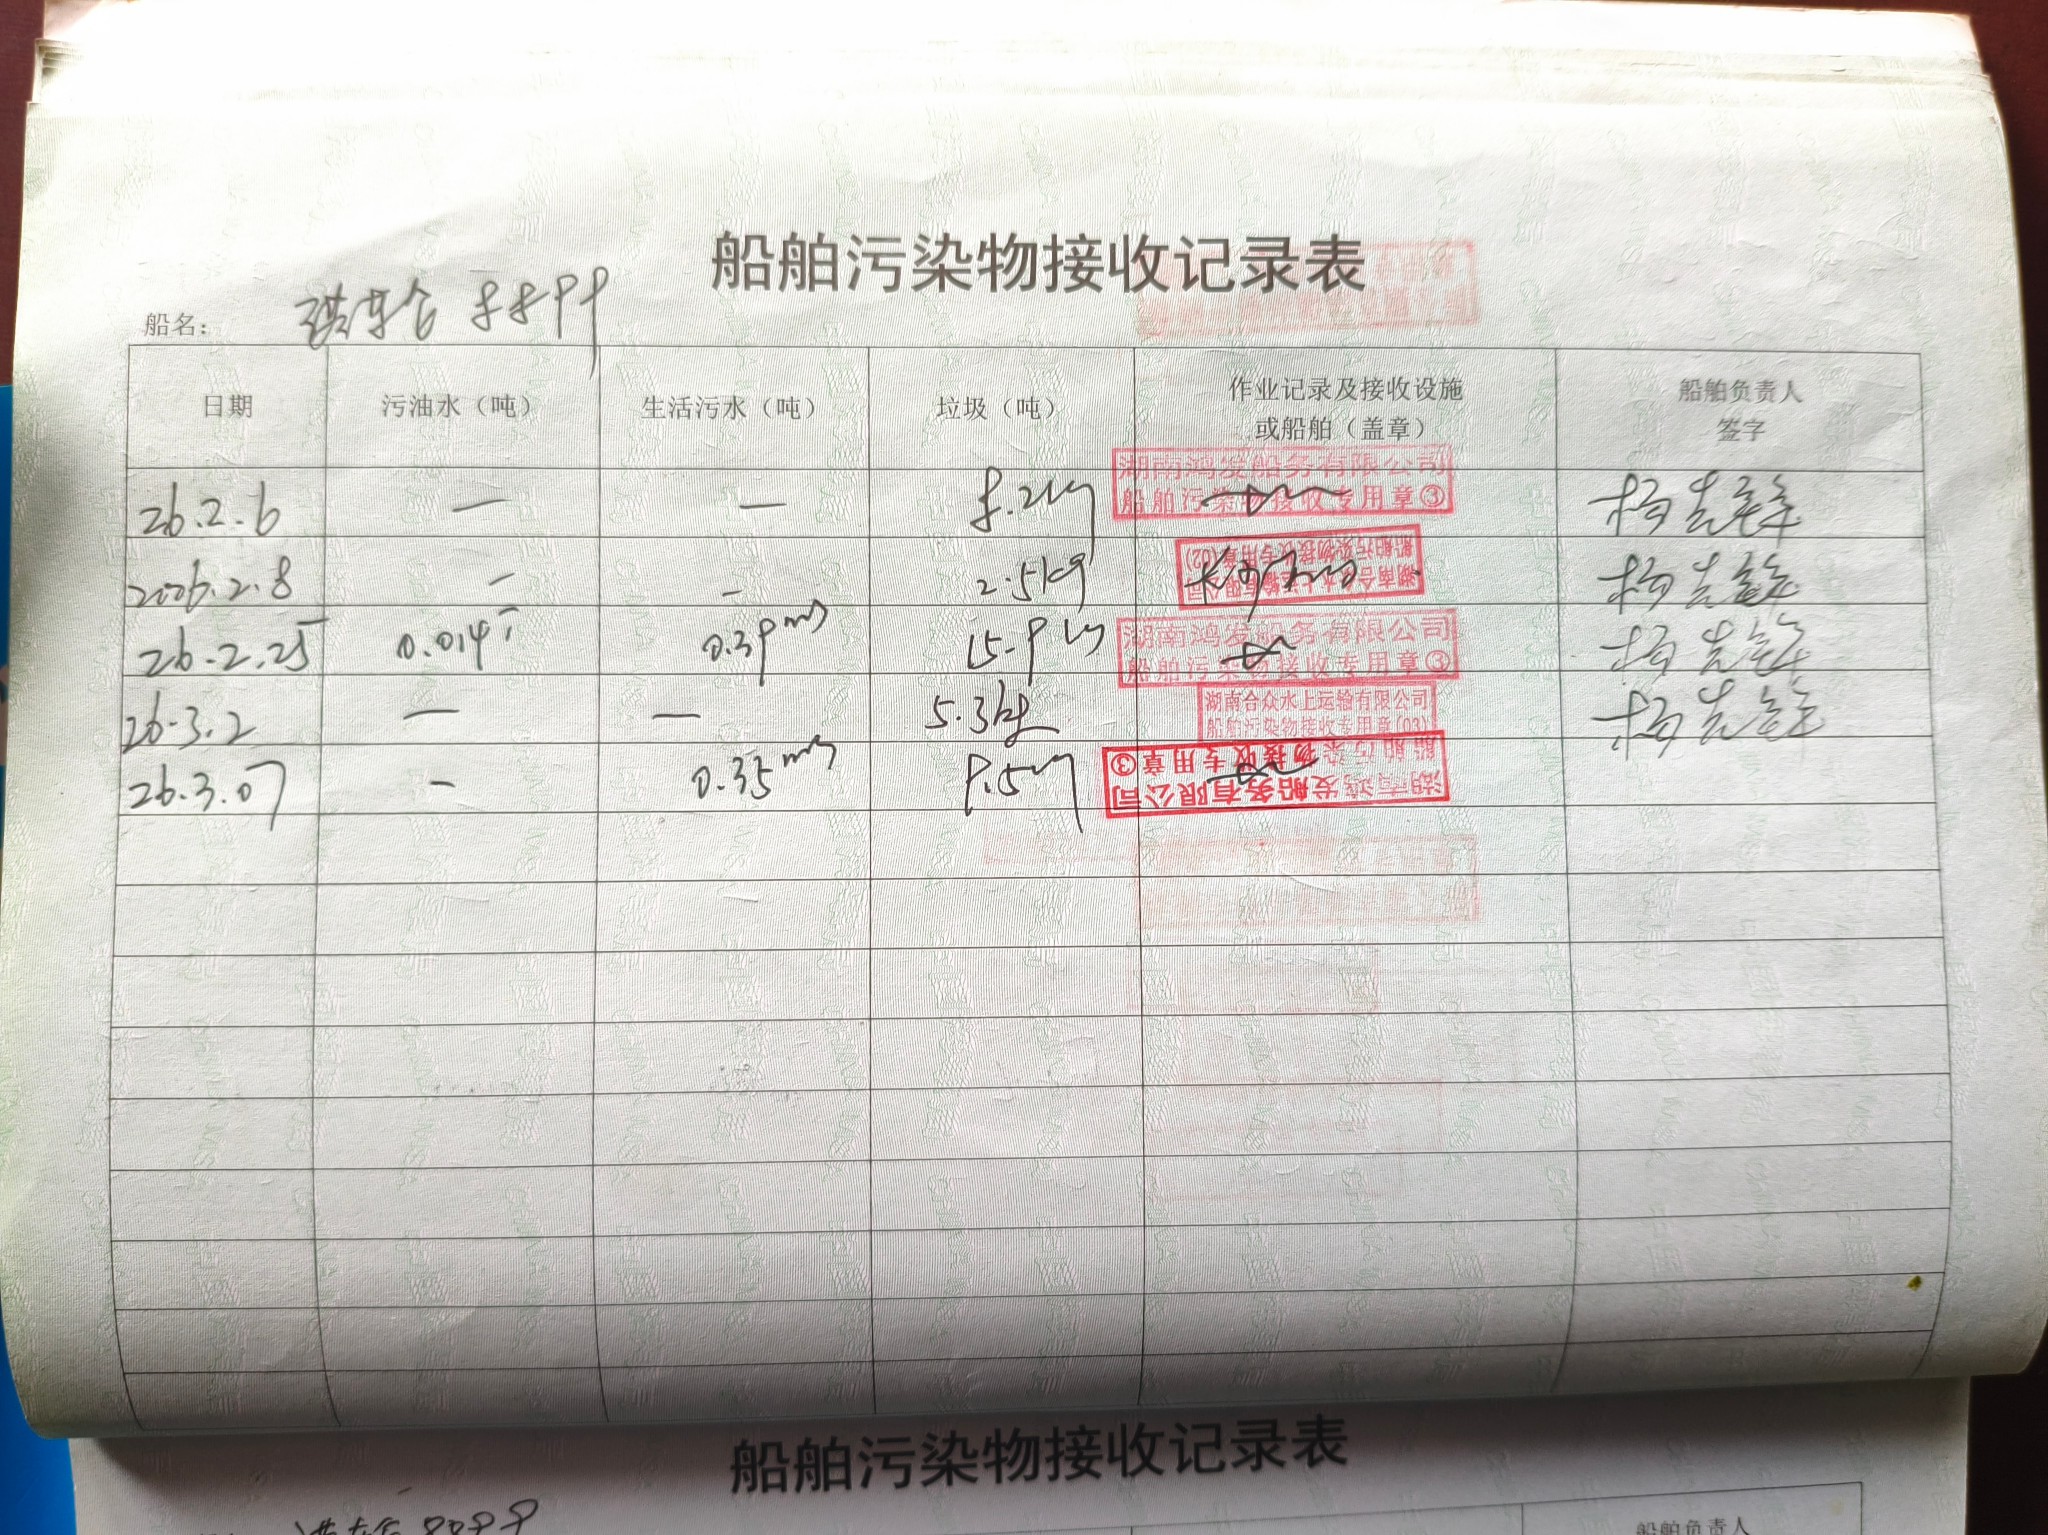 船舶污染物接收记录表
船名: 8899
日期 污油水（吨） 生活污水（吨） 垃圾（吨） 作业记录及接收设施或船舶（盖章） 船舶负责人签字
26.2.6 — — 8.2kg 湖南鸿发船务有限公司 船舶污染物接收专用章③
2026.2.8 - - 2.5kg 湖南合众水上运输有限公司 船舶污染物接收专用章(02)
26.2.25 0.014 0.39m3 15.9kg 湖南鸿发船务有限公司 船舶污染物接收专用章③
26.3.2 — — 5.3kg 湖南合众水上运输有限公司 船舶污染物接收专用章(03)
26.3.07 - 0.35m3 9.5kg 湖南鸿发船务有限公司 船舶污染物接收专用章③
船舶污染物接收记录表
8899
船舶负责人